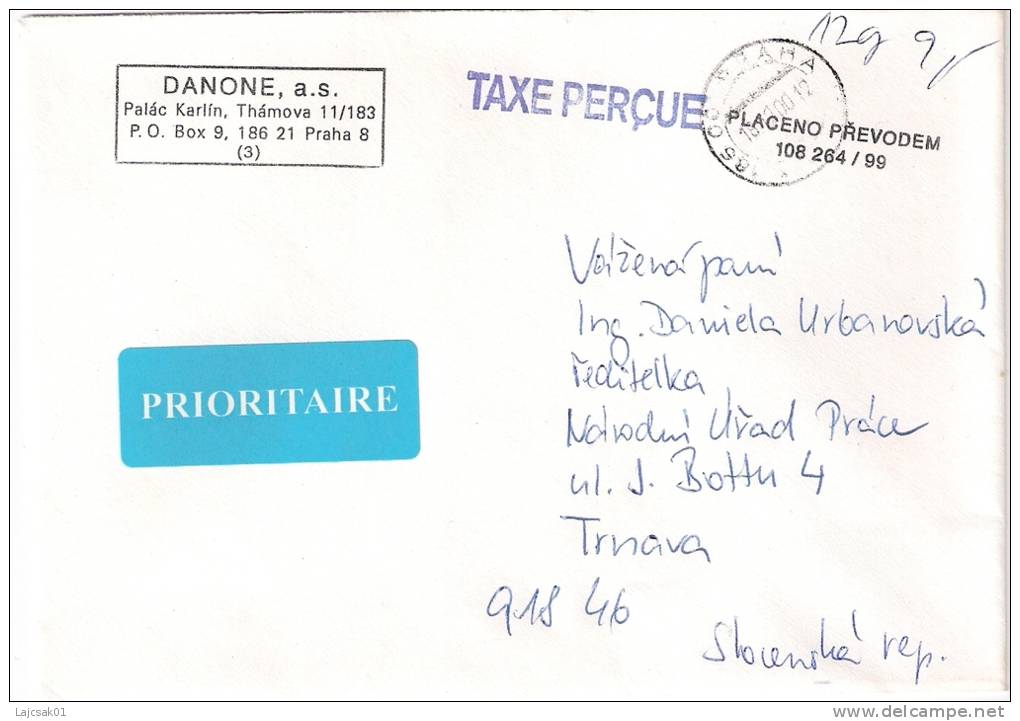 12g 9,-
DANONE, a.s.
Palác Karlín, Thámova 11/183
P. O. Box 9, 186 21 Praha 8
(3)
TAXE PERÇUE
PRAHA
PLACENO PŘEVODEM
108 264 / 99
Vážená paní
Ing. Daniela Urbanovská
ředitelka
PRIORITAIRE
Národní Úřad Práce
ul. J. Bottu 4
Trnava
918 46
Slovenská rep.
Lajcsak01
www.delcampe.net